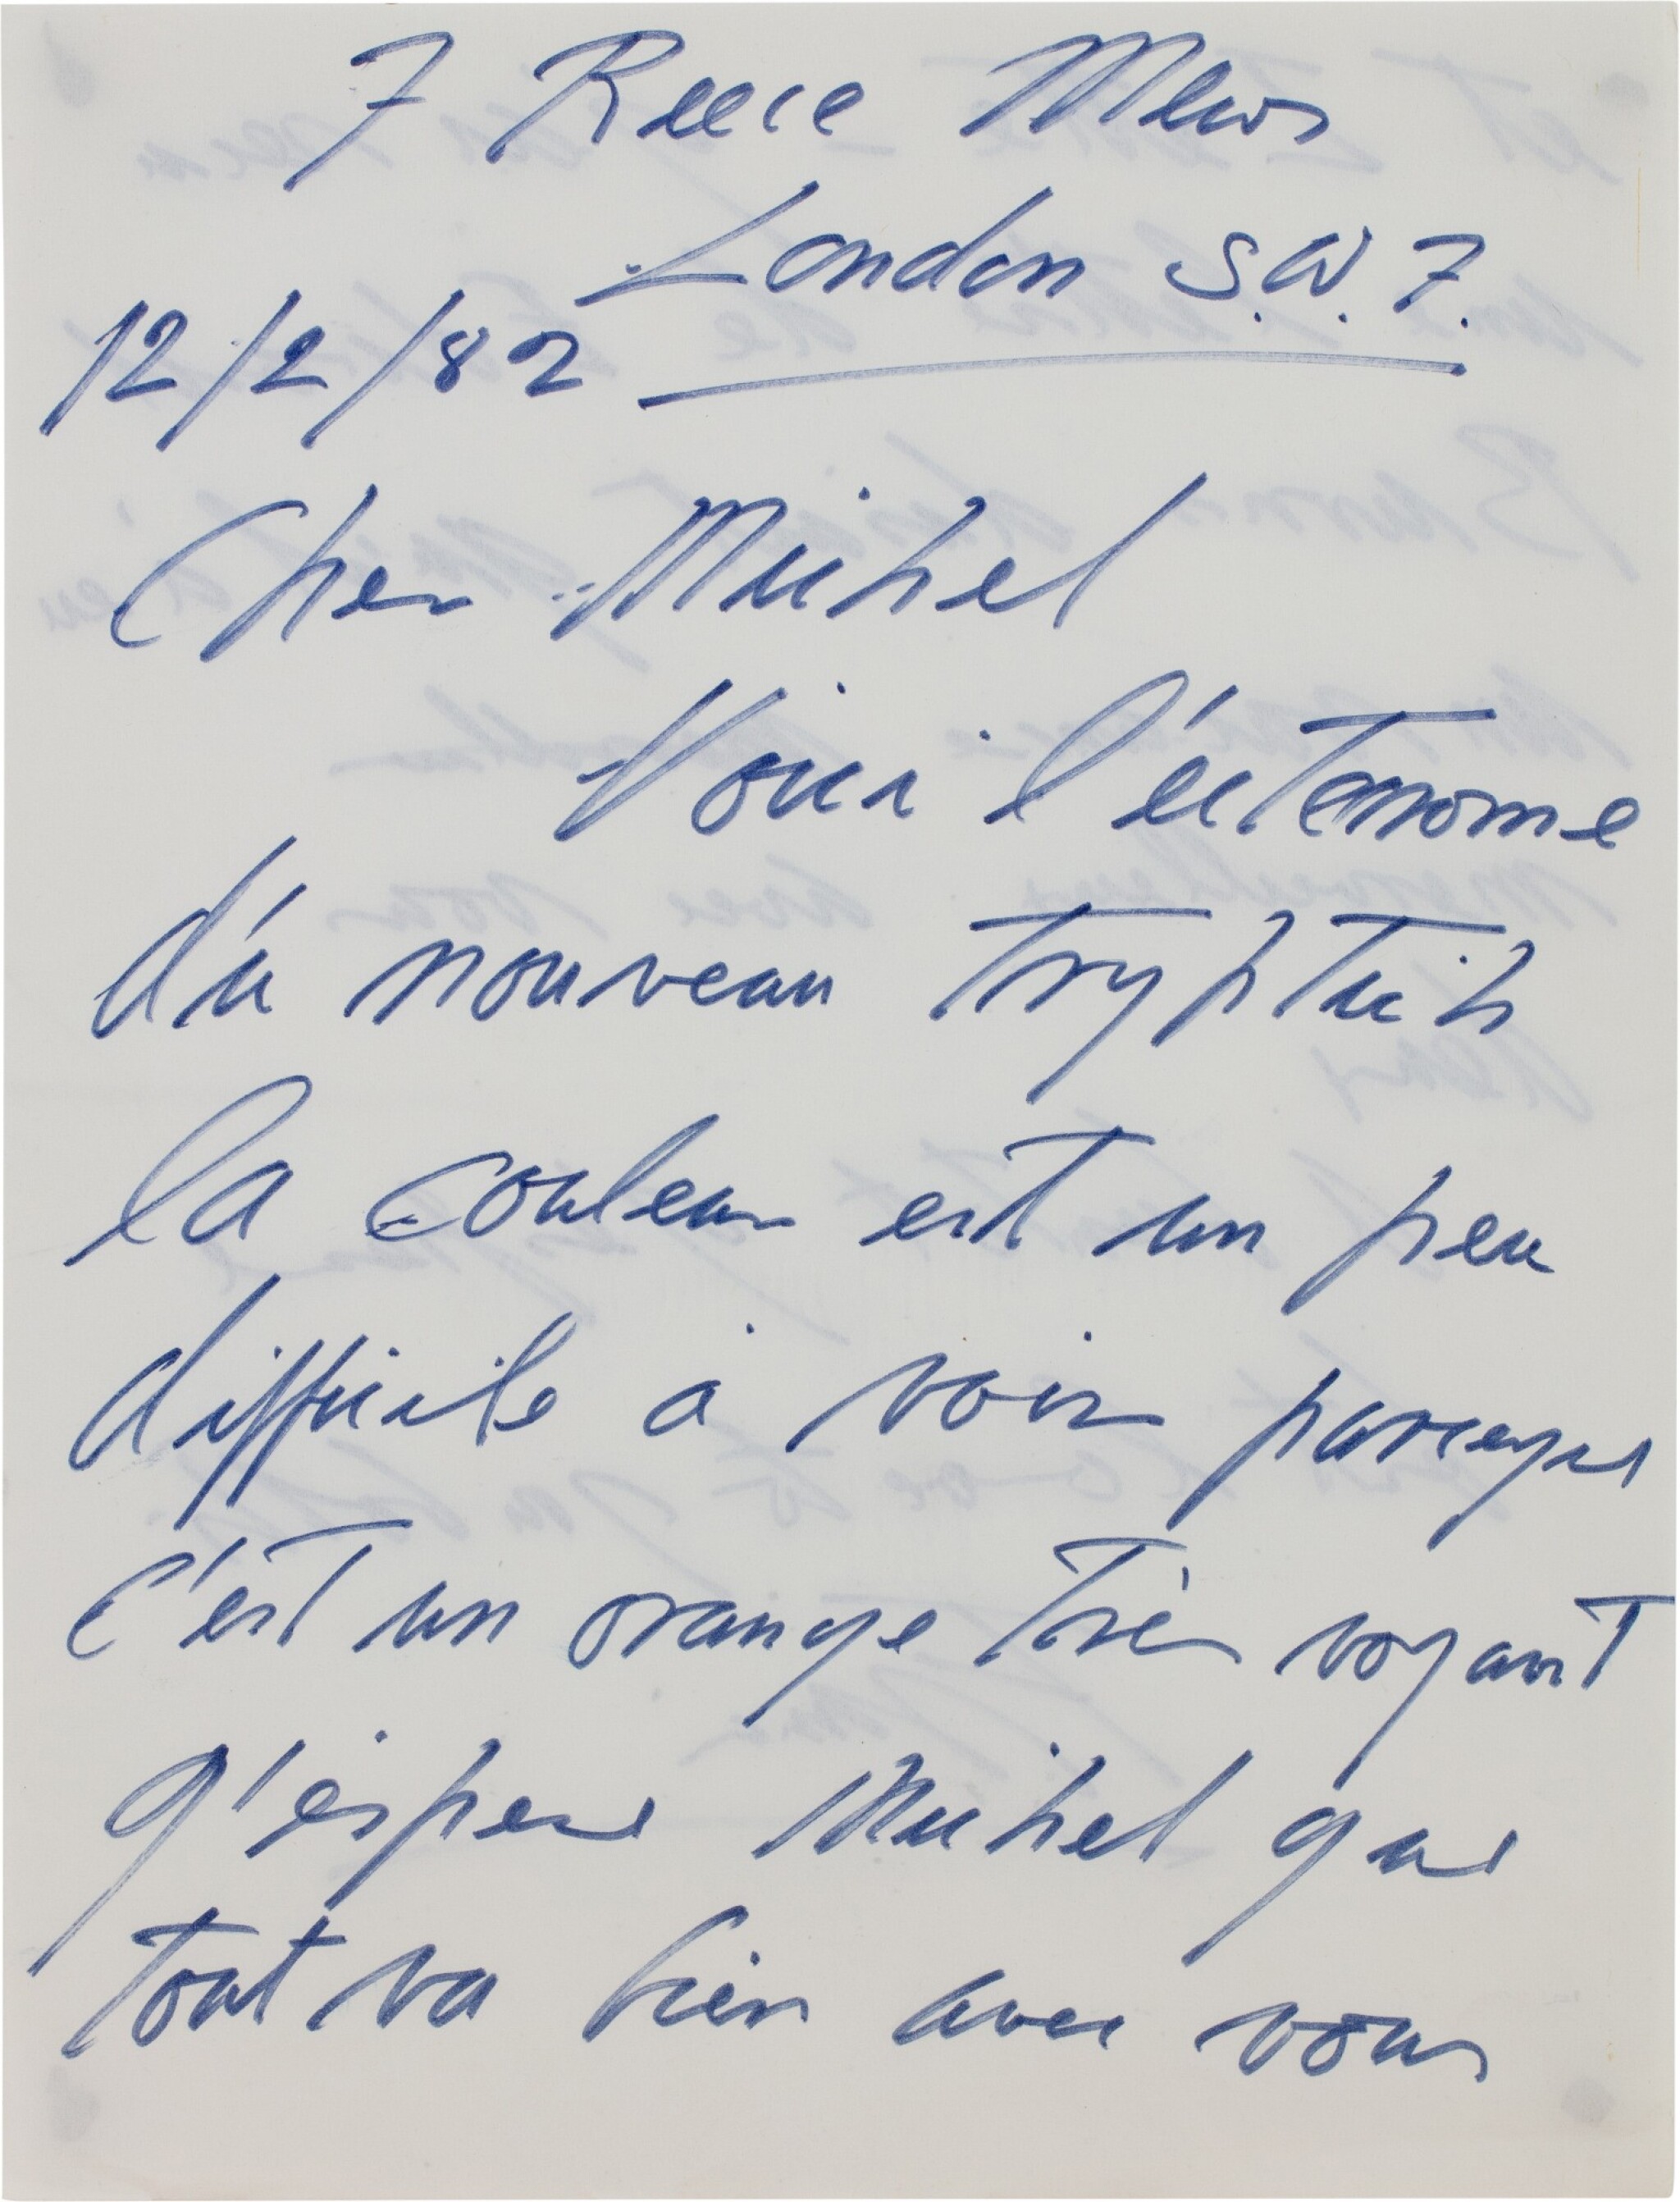 7 Reece Mews
London S.W.7.
12/2/82
Cher Michel
Voici l'éctenome
d'u nouveau tryptich
la couleur est un peu
difficile a voir parceque
c'est un orange très voyant
J'éspere Michel que
tout va bien avec vous